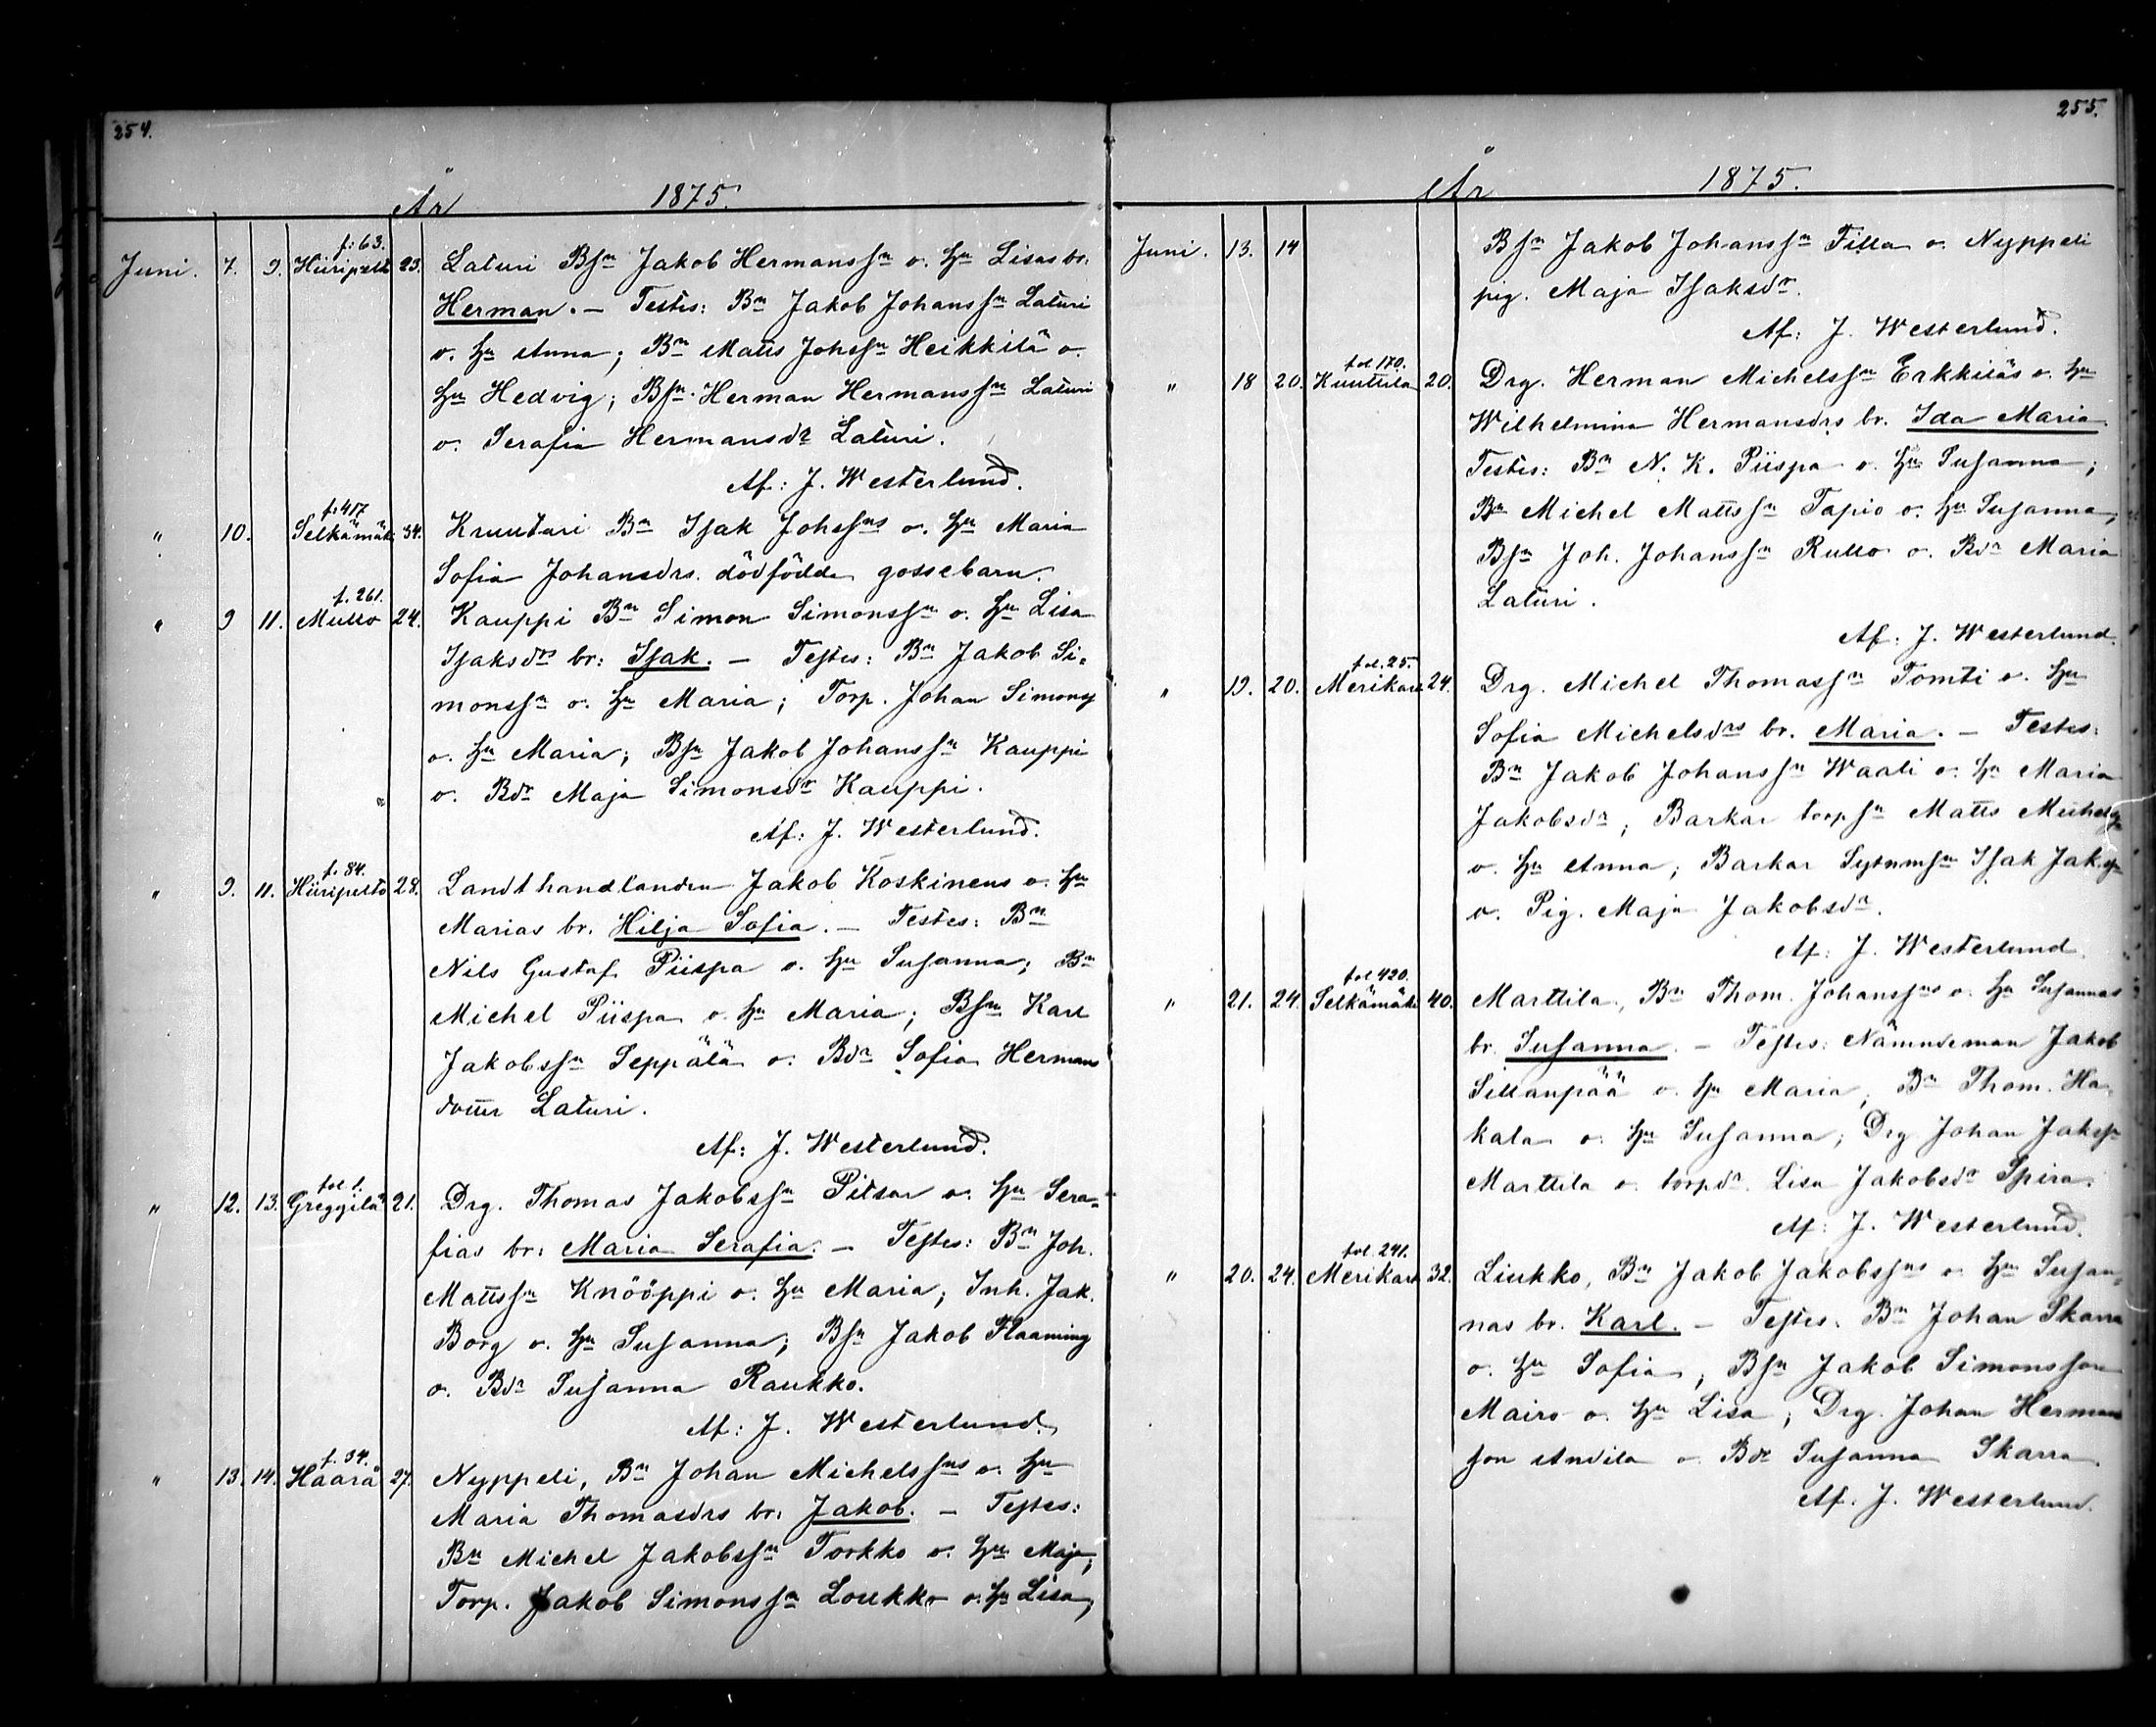 254.
År 1875.
f: 63.
Juni. 7. 9. Hiiripelt 23. Laturi Bsn Jakob Hermanssn o. hu Lisas br.
Herman. — Testes: Bn Jakob Johanssn Laturi
o. hu Anna; Bn Matts Johssn Heikkilä o.
hu Hedvig; Bsn. Herman Hermanssn Laturi
o. Serafia Hermansdr Laturi.
Af: J. Westerlund.
f. 417
" 10. Selkämäk 34. Kruuturi Bn Isak Johssns o. hu Maria
Sofia Johansdrs. dödfödde gossebarn.
f. 261.
" 9 11. Mullo 24. Kauppi Bn Simon Simonssn o. hu Lisa
Isaksdrs br: Isak. — Testes: Bn Jakob Si-
monssn o. hu Maria; Torp. Johan Simonss
o. hu Maria; Bsn Jakob Johanssn Kauppi
o. Bdr Maja Simonsdr Kauppi.
Af: J. Westerlund.
f. 84.
" 9. 11. Hiiripelto 28. Landthandlanden Jakob Koskinens o. hu
Marias br. Hilja Sofia. — Testes: Bn
Nils Gustaf Piispa o. hu Susanna; Bn
Michel Piispa o. hu Maria; Bsn Karl
Jakobssn Seppälä o. Bdr Sofia Hermans
dotter Laturi.
Af: J. Westerlund.
fol. 1.
" 12. 13. Greggilä 21. Drg. Thomas Jakobssn Pitsar o. hu Sera-
fias br: Maria Serafia. — Testes: Bn Joh.
Mattssn Knööppi o. hu Maria; Inh. Jak.
Borg o. hu Susanna; Bsn Jakob Flaaming
o. Bdr Susanna Raukko.
Af: J. Westerlund.
f. 34.
" 13. 14. Haarä 27. Nyppeli, Bn Johan Michelssns o. hu
Maria Thomasdrs br: Jakob. — Testes:
Bn Michel Jakobssn Torkko o. hu Maja;
Torp. Jakob Simonssn Loukko o. hu Lisa,
255.
År 1875.
Juni. 13. 14 Bsn Jakob Johanssn Filla o. Nyppeli
pig. Maja Isaksdr.
Af: J. Westerlund.
fol 170.
" 18 20. Kuuttila 20. Drg. Herman Michelssn Erkkiläs o. hu
Wilhelmina Hermansdrs br. Ida Maria.
Testes: Bn N. K. Piispa o. hu Susanna;
Bn Michel Mattssn Tapio o. hu Susanna,
Bsn Joh. Johanssn Rullo o. Bdr Maria
Laturi.
Af: J. Westerlund.
fol. 25.
" 19. 20. Merikar 24. Drg. Michel Thomassn Tomti o. hu
Sofia Michelsdrs br. Maria. — Testes:
Bn Jakob Johanssn Waali o. hu Maria
Jakobsdr; Barkar torpsn Matts Michelss
o. hu Anna; Barkar Sytnmsn Isak Jakss
o. Pig. Maja Jakobsdr.
Af: J. Westerlund.
fol 420.
" 21. 24. Selkämäki 40. Marttila, Bn Thom. Johanssns o. hu Susannas
br. Susanna. — Testes: Nämndeman Jakob
Sillanpää o. hu Maria, Bn Thom. Ha-
kala o. hu Susanna; Drg Johan Jakss
Marttila o. torpdr. Lisa Jakobsdr Spira.
Af: J. Westerlund.
fol. 241.
" 20. 24. Merikar 32. Liukko, Bn Jakob Jakobssns o. hu Susan-
nas br. Karl. — Testes: Bn Johan Skarra
o. hu Sofia; Bsn Jakob Simonsson
Mairo o. hu Lisa; Drg. Johan Herman
son Andila o. Bdr Susanna Skarra.
Af: J. Westerlund.